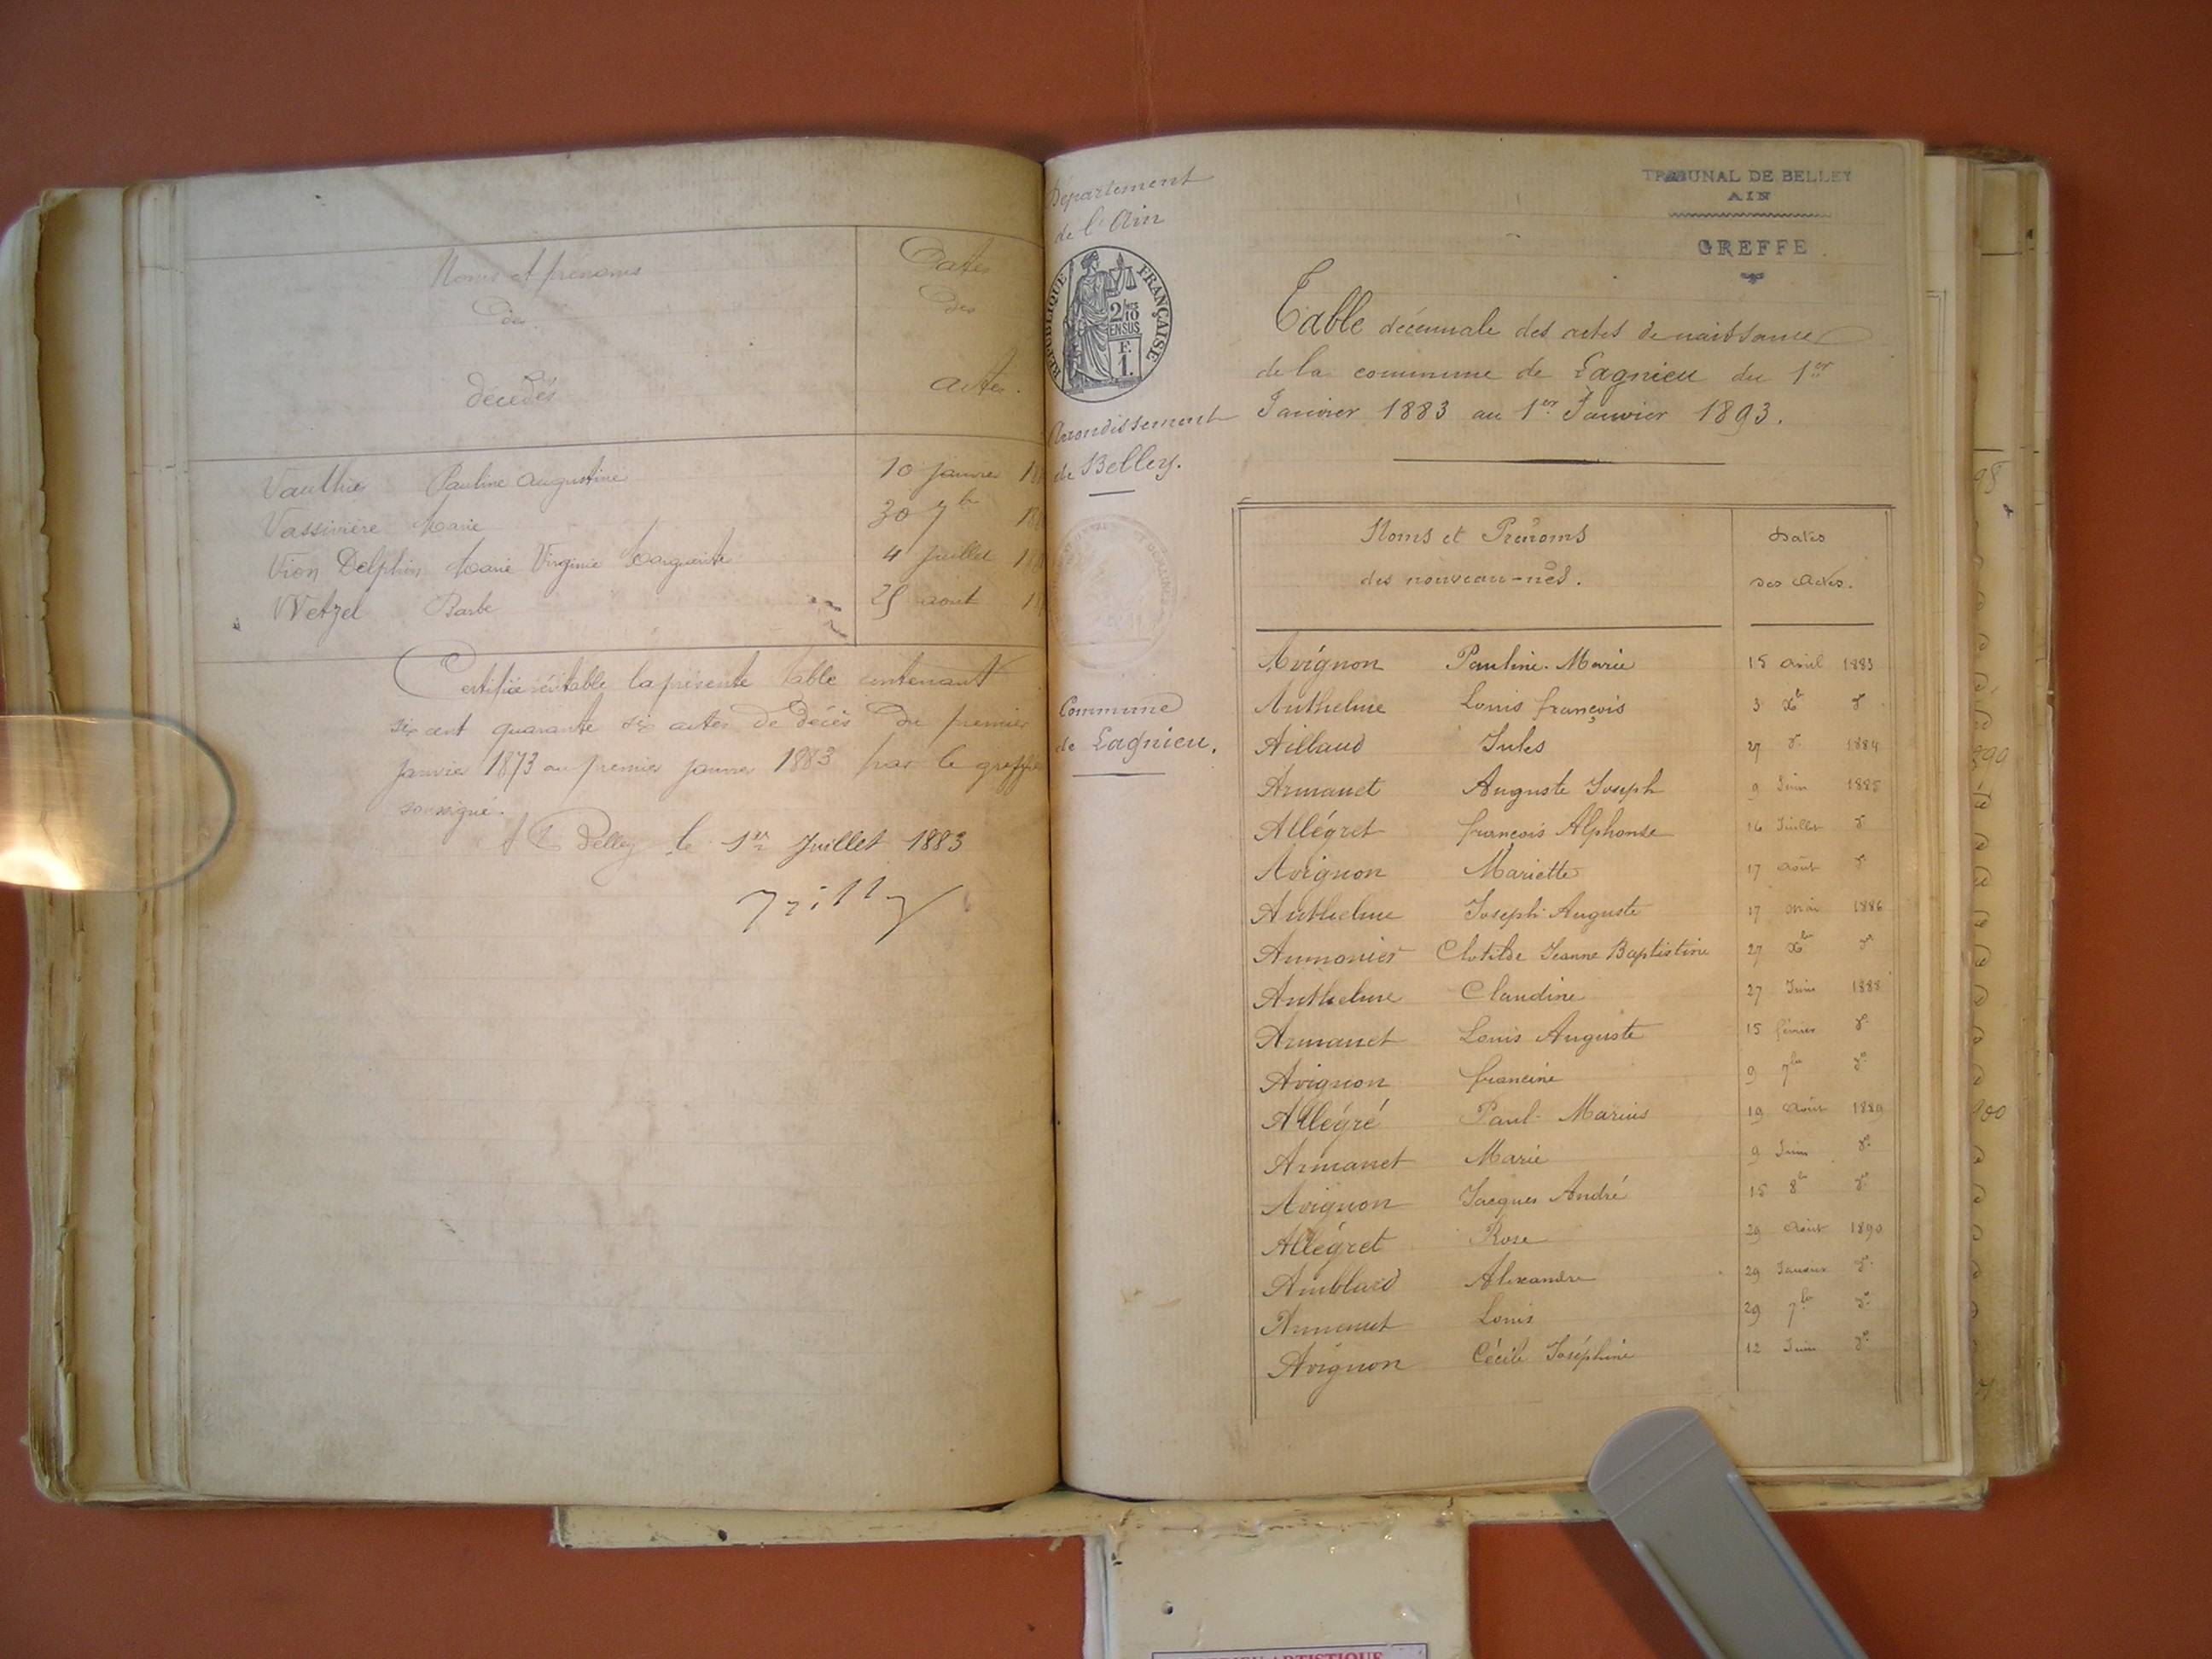 Noms et prénoms
des
décédés
Dates
des
actes.
Vauthier Pauline Augustine 10 janvier
Vassivière Marie 30 7b
Vion Delphin Marie Virginie Marguerite 4 juillet
Wetzel Barbe 25 août
Certifié véritable la présente table contenant
six cent quarante six actes de décès du premier
janvier 1873 au premier janvier 1883 par le greffier
soussigné.
Belley le 1er Juillet 1883
Département
de l'Ain
RÉPUBLIQUE FRANÇAISE
2/10
EN SUS
F.
1.
Arrondissement
de Belley.
Commune
de Lagnieu.
TRIBUNAL DE BELLEY
AIN
GREFFE
Table décennale des actes de naissances
de la commune de Lagnieu du 1er
Janvier 1883 au 1er Janvier 1893.
Noms et Prénoms
des nouveau-nés.
Dates
des Actes.
Avignon Pauline-Marie 15 avril 1883
Anthelme Louis François 3 Xb d°
Aillaud Jules 27 d° 1884
Armanet Auguste Joseph 9 Juin 1885
Allégret François Alphonse 16 Juillet d°
Avignon Mariette 17 Août d°
Anthelme Joseph-Auguste 17 Mai 1886
Aumonier Clotilde Jeanne Baptistine 27 Xb d°
Anthelme Claudine 27 Juin 1888
Armanet Louis Auguste 15 février d°
Avignon Francine 9 7bre d°
Allégré Paul-Marius 19 Août 1889
Armanet Marie 9 Juin d°
Avignon Jacques André 15 8b d°
Allégret Rose 29 Août 1890
Amblard Alexandre 29 Janvier d°
Armanet Louis 29 7br d°
Avignon Cécile Joséphine 12 Juin d°
ARTISTIQUE